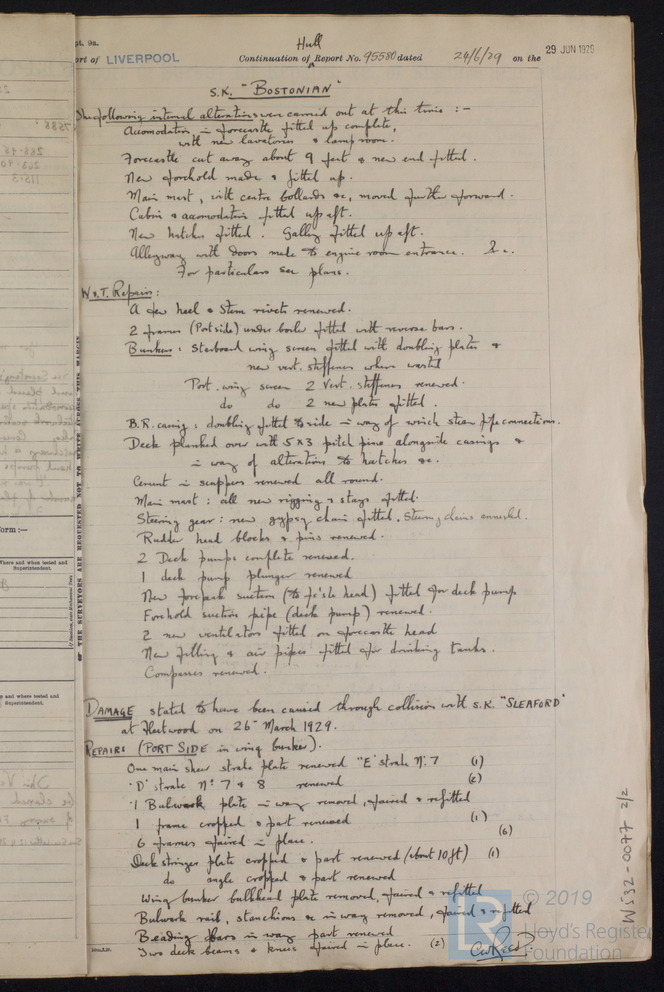 Rpt. 9a.
Port of LIVERPOOL
Hull
Continuation of Report No. 95580 dated 24/6/29 on the
29 JUN 1929
S.K. "BOSTONIAN"
The following internal alterations were carried out at this time :-
Accomodation in forecastle fitted up complete,
with new lavatories & lamp room.
Forecastle cut away about 9 feet & new end fitted.
New forehold made & fitted up.
Main mast, with centre bollards &c, moved further forward.
Cabin & accomodation fitted up aft.
New hatches fitted. Galley fitted up aft.
Alleyway with doors made to engine room entrance.
For particulars see plans.
W & T. Repairs:
A few heel & Stem rivets renewed.
2 frames (Port side) under boiler fitted with reverse bars.
Bunkers: Starboard wing screen fitted with doubling plates &
new vert. stiffeners where wasted
Port wing screen 2 Vert. stiffeners renewed.
do do 2 new plates fitted.
B.R. casing: doubling fitted to side in way of winch steam pipe connections.
Deck planked over with 5 x 3 pitch pine alongside casings &
in way of alterations to hatches &c.
Cement in scuppers renewed all round.
Main mast: all new rigging & stays fitted.
Steering gear: new gypsy chain fitted. Steering chains annealed.
Rudder head blocks & pins renewed.
2 Deck pumps complete renewed.
1 deck pump plunger renewed
New forepeak suction (to fo'c'sle head) fitted for deck pump
Forehold suction pipe (deck pump) renewed.
2 new ventilators fitted on forecastle head
New filling & air pipes fitted for drinking tanks.
Compasses renewed.
DAMAGE stated to have been caused through collision with S.K. "SLEAFORD"
at Fleetwood on 26th March 1929.
REPAIRS (PORT SIDE in wing bunker).
One main sheer strake plate renewed "E" strake No. 7 (1)
"D" strake Nos 7 & 8 renewed (2)
1 Bulwark plate in way removed, faired & refitted
1 frame cropped & part renewed (1)
6 frames faired in place. (6)
Deck stringer plate cropped & part renewed (about 10 ft) (1)
do angle cropped & part renewed
Wing bunker bulkhead plate removed, faired & refitted
Bulwark rail, stanchions &c in way removed, faired & refitted
Beading bars in way part renewed
Two deck beams & knees faired in place. (2)
OF THE SURVEYORS ARE REQUESTED NOT TO WRITE ACROSS THIS MARGIN
form :—
Where and when tested and
Superintendent.
and where tested and
Superintendent.
WS32-0077 2/2
© 2019
Lloyd's Register
Foundation
LR